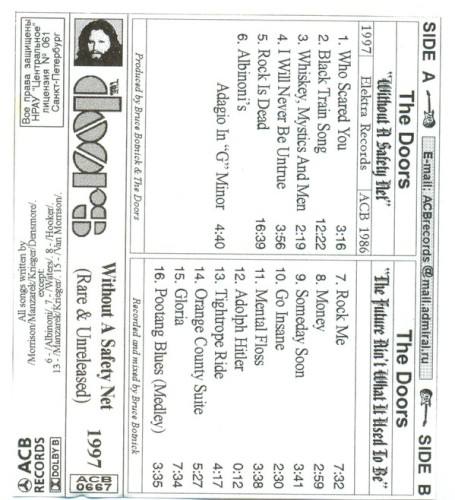 SIDE A E-mail: ACBrecords @mail.admiral.ru SIDE B
The Doors
"Without A Safety Net"
1997 Elektra Records ACB 1986
1. Who Scared You 3:16
2. Black Train Song 12:22
3. Whiskey, Mystics And Men 2:19
4. I Will Never Be Untrue 3:56
5. Rock Is Dead 16:39
6. Albinoni's
Adagio In "G" Minor 4:40
Produced by Bruce Botnick & The Doors
The Doors
"The Future Ain't What It Used To Be"
7. Rock Me 7:32
8. Money 2:59
9. Someday Soon 3:41
10. Go Insane 2:30
11. Mental Floss 3:38
12. Adolph Hitler 0:12
13. Tightrope Ride 4:17
14. Orange County Suite 5:27
15. Gloria 7:34
16. Pootang Blues (Medley) 3:35
Recorded and mixed by Bruce Botnick
the doors
Without A Safety Net 1997
(Rare & Unreleased)
ACB
0667
Все права защищены
НРАУ "Центральное"
лицензия № 061
Санкт-Петербург
All songs written by
/Morrison/Manzarek/Krieger/Densmore/.
except:
13 - /Manzarek/Krieger/. 15 - /Van Morrison/.
ACB
RECORDS
DOLBY B